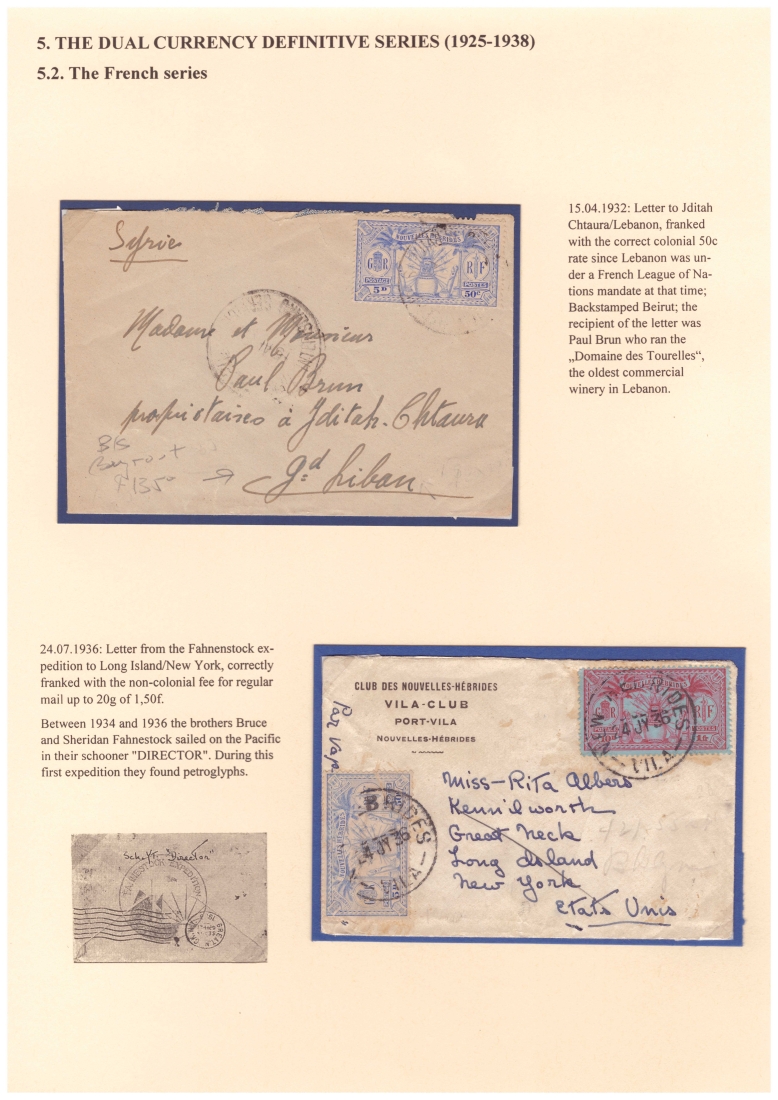 5. THE DUAL CURRENCY DEFINITIVE SERIES (1925-1938)
5.2. The French series
Syrie
NOUVELLES HÉBRIDES
G R
R F
POSTAGE
POSTES
5D
50c
Madame et Monsieur
Paul Brun
propriétaires à Jditah-Chtaura
gd Liban
B/S
Beyrout
15.04.1932: Letter to Jditah
Chtaura/Lebanon, franked
with the correct colonial 50c
rate since Lebanon was un-
der a French League of Na-
tions mandate at that time;
Backstamped Beirut; the
recipient of the letter was
Paul Brun who ran the
„Domaine des Tourelles“,
the oldest commercial
winery in Lebanon.
24.07.1936: Letter from the Fahnenstock ex-
pedition to Long Island/New York, correctly
franked with the non-colonial fee for regular
mail up to 20g of 1,50f.
Between 1934 and 1936 the brothers Bruce
and Sheridan Fahnestock sailed on the Pacific
in their schooner "DIRECTOR". During this
first expedition they found petroglyphs.
"Director"
FAHNESTOCK EXPEDITION
GREAT NECK
CLUB DES NOUVELLES-HÉBRIDES
VILA-CLUB
PORT-VILA
NOUVELLES-HÉBRIDES
Par Vapeur
NEW HEBRIDES
24 JY 36
VILA
R F
BRIDES
24 JY 36
VILA
Miss-Rita Albers
Kennilworth
Great Neck
Long Island
New York
Etats Unis